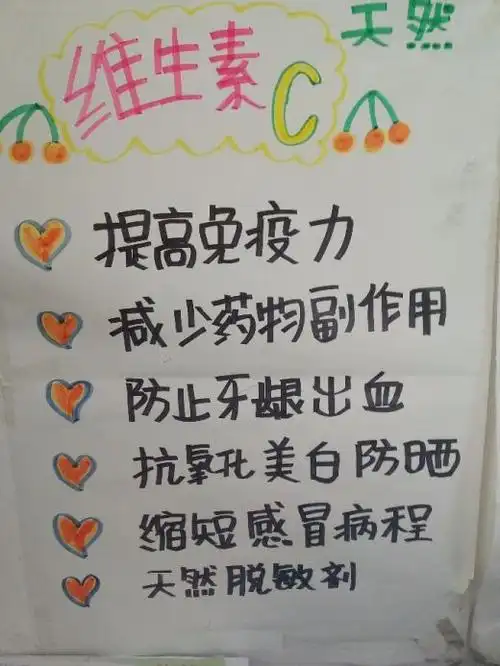 天然
维生素C
提高免疫力
减少药物副作用
防止牙龈出血
抗氧化美白防晒
缩短感冒病程
天然脱敏剂